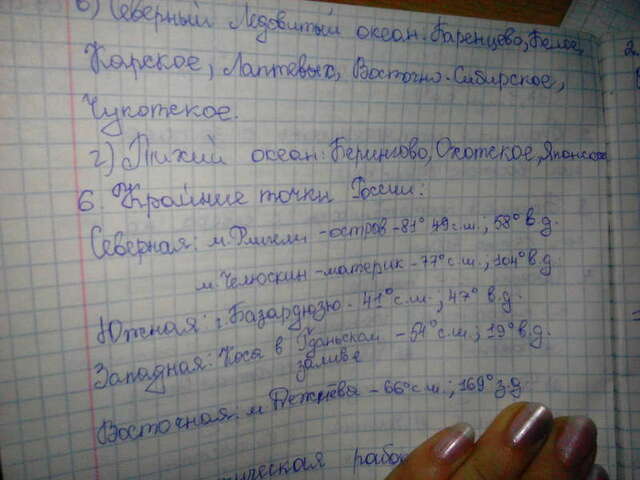 в) Северный Ледовитый океан: Баренцево, Белое,
Карское, Лаптевых, Восточно-Сибирское,
Чукотское.
г) Тихий океан: Берингово, Охотское, Японское
6. Крайние точки России:
Северная: м. Флигели - остров - 81° 49 с.ш.; 58° в.д.
м. Челюскин - материк - 77° с.ш.; 104° в.д.
Южная: г. Базардюзю - 41° с.ш.; 47° в.д.
Западная: Коса в Гданьском заливе - 54° с.ш.; 19° в.д.
Восточная: м. Дежнева - 66° с.ш.; 169° з.д.